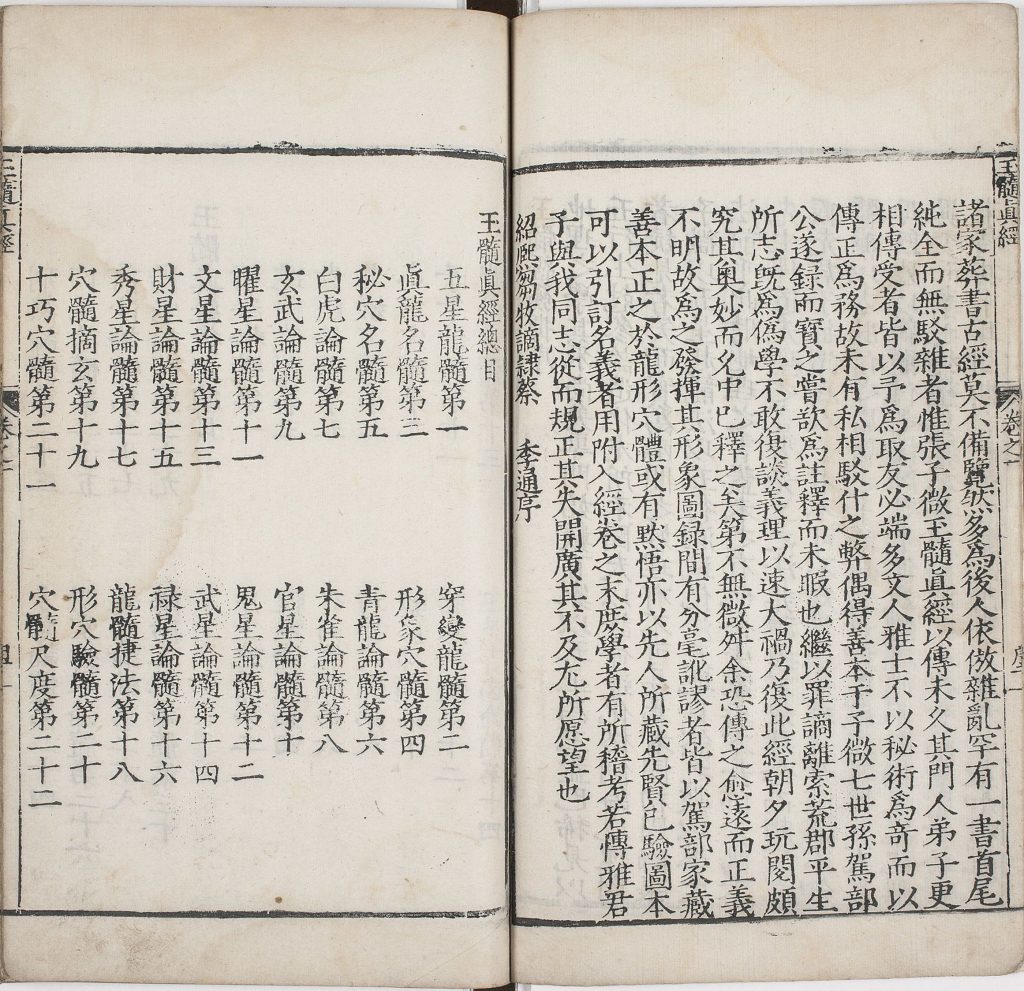 玉髓眞經
卷之一
諸家葬書古經莫不備覽然多為後人依倣雜亂罕有一書首尾
純全而無駁雜者惟張子微玉髓眞經以傳未久其門人弟子更
相傳受者皆以予為取友必端多文人雅士不以秘術為奇而以
傳正為務故未有私相駁什之弊偶得善本于子微七世孫駕部
公遂録而寶之嘗欲為註釋而未暇也繼以罪謫離索荒郡平生
所志旣為偽學不敢復談義理以速大禍乃復此經朝夕玩閱頗
究其奥妙而允中巳釋之矣第不無微舛余恐傳之愈遠而正義
不明故為之發揮其形象圖録間有分毫訛謬者皆以駕部家藏
善本正之於龍形穴體或有黙悟亦以先人所藏先賢巳驗圖本
可以引訂名義者用附入經卷之末庶學者有所稽考若博雅君
子與我同志從而規正其失開廣其不及尤所愿望也
紹熈芻牧謫隷蔡　季通序
王髓眞經總目
五星龍髓第一　穿變龍髓第二
眞龍名髓第三　形象穴髓第四
秘穴名髓第五　青龍論髓第六
白虎論髓第七　朱雀論髓第八
玄武論髓第九　官星論髓第十
曜星論髓第十一　鬼星論髓第十二
文星論髓第十三　武星論髓第十四
財星論髓第十五　禄星論髓第十六
秀星論髓第十七　龍髓捷法第十八
穴髓摘玄第十九　形穴驗髓第二十
十巧穴髓第二十一　穴髓尺度第二十二
玉髓眞經
卷之一